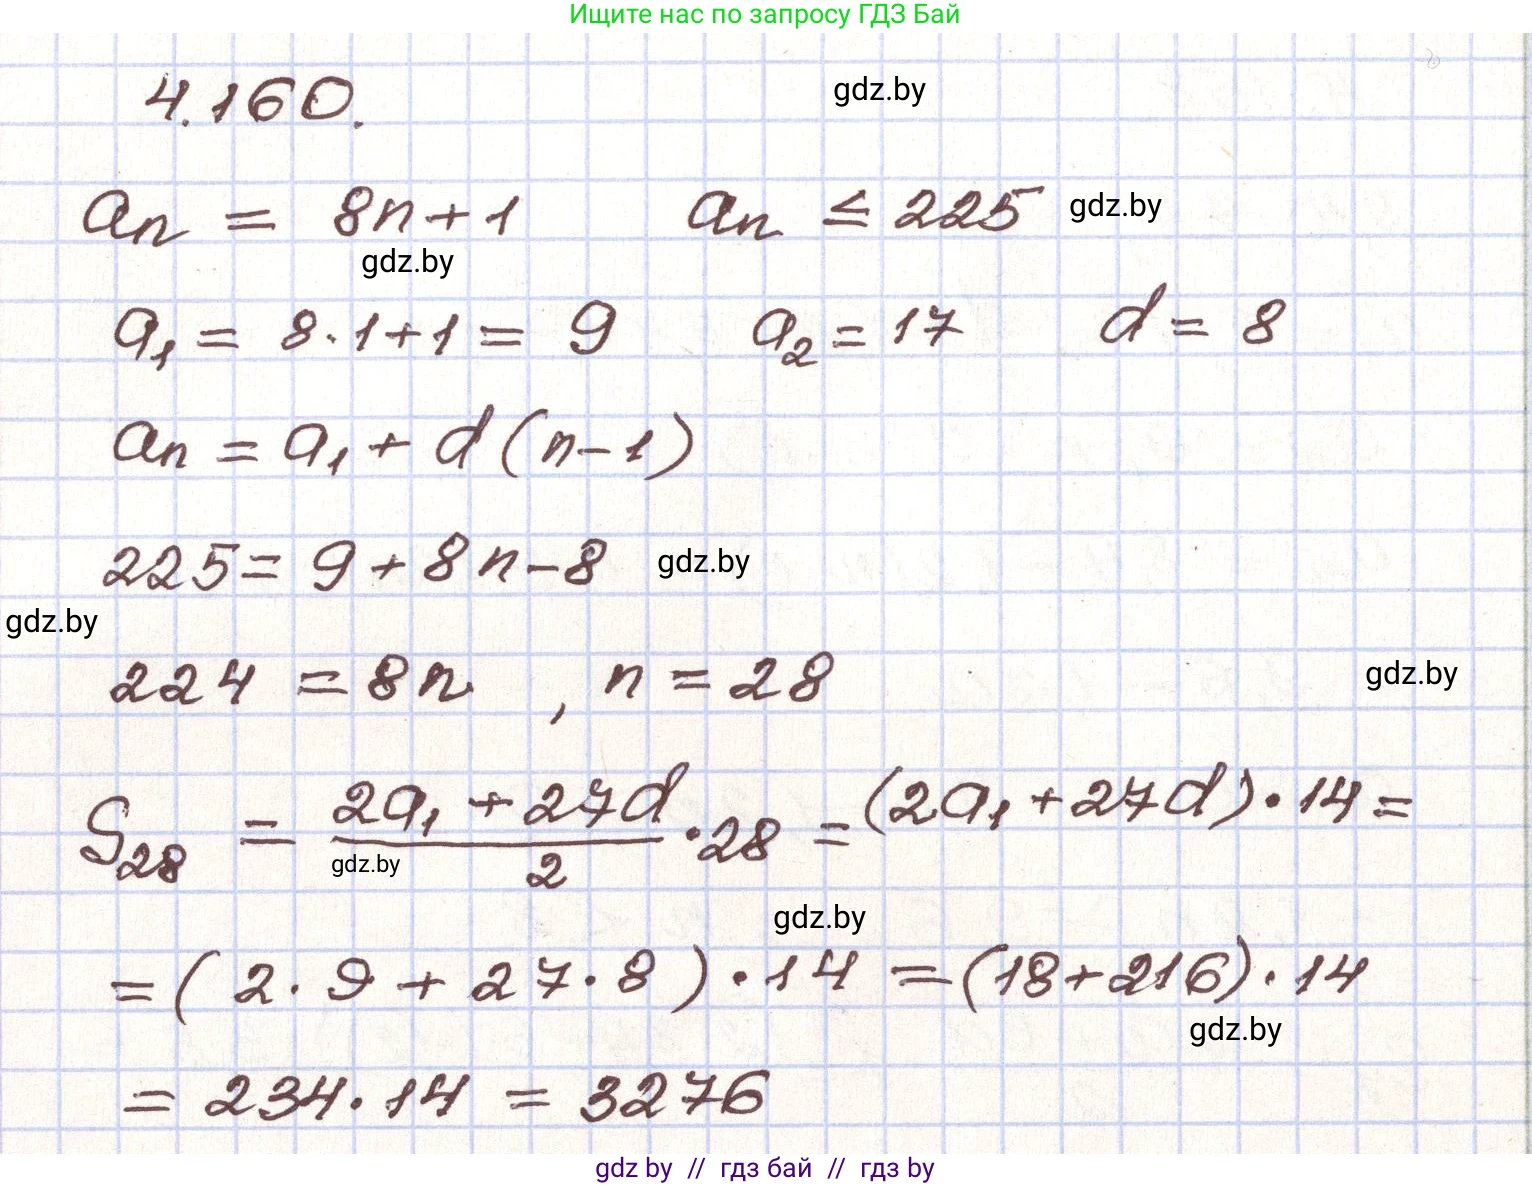 Ищите нас по запросу ГДЗ Бай
4.160.
gdz.by
aₙ = 8n + 1    aₙ ≤ 225
gdz.by
gdz.by
a₁ = 8·1 + 1 = 9    a₂ = 17    d = 8
aₙ = a₁ + d (n - 1)
225 = 9 + 8n - 8
gdz.by
gdz.by
224 = 8n , n = 28
gdz.by
S₂₈ = (2a₁ + 27d)/2 · 28 = (2a₁ + 27d) · 14 =
gdz.by
gdz.by
= (2·9 + 27·8) · 14 = (18 + 216) · 14
gdz.by
= 234 · 14 = 3276
gdz by // гдз бай // гдз by